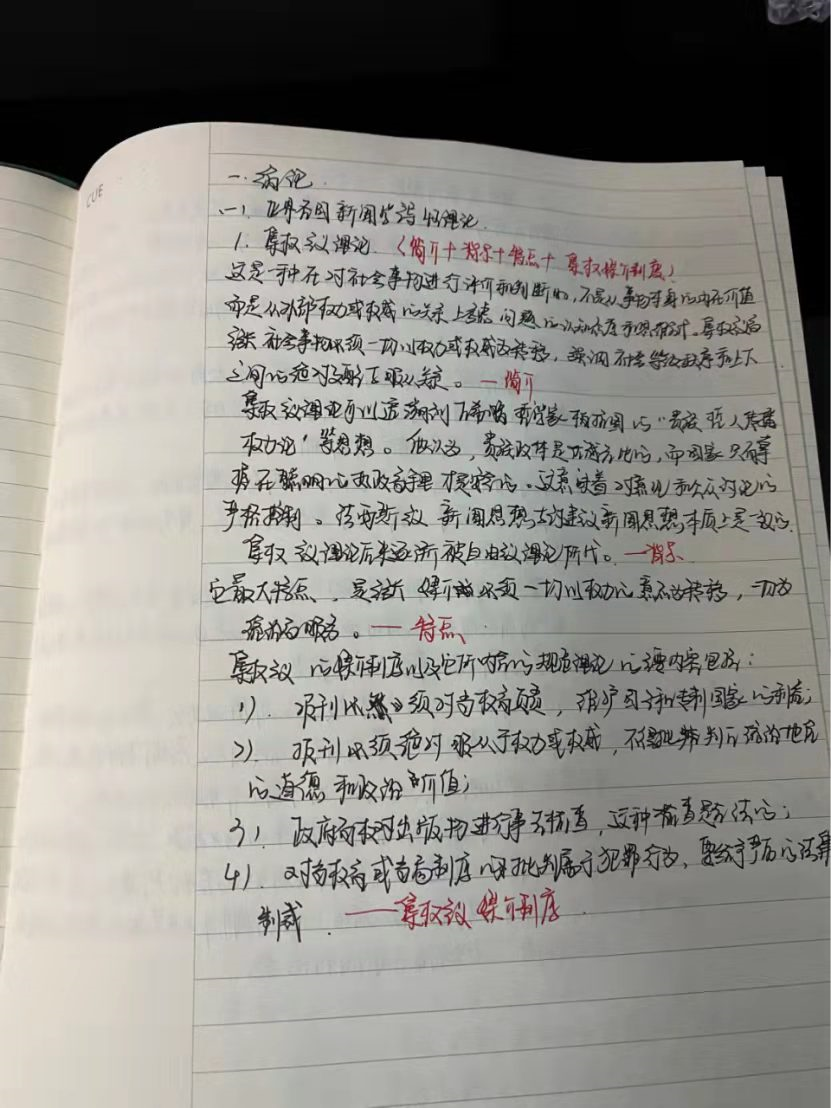 CUE
一. 绪论.
(一). 世界各国新闻学与传播理论.
1. 集权主义理论. (简介+背景+特点+集权媒介制度)
这是一种在对社会事物进行评价和判断时, 不是从事物本身的内在价值
而是从外部权力或权威的关系上考虑问题的认知态度和思维方式. 集权主义
强调社会事物必须一切以权力或权威为转移, 强调社会等级秩序和上下
之间的绝对支配与服从关系。—简介
集权主义理论可以追溯到古希腊哲学家柏拉图的“贵族哲人
权力论”等思想。他认为, 贵族政体是, 而国家只有掌
握在聪明的政治家手里才是 的。这意味着对 和公众讨论的
严格控制。法西斯主义新闻思想与封建主义新闻思想本质上是一致的.
集权主义理论后来逐渐被自由主义理论所代。—背景
它最大特点, 是主张媒介必须一切以权力的意志为转移, 一切为
统治者服务。— 特点
集权主义的媒介制度以及它所内含的规范理论的主要内容包括:
1). 报刊必须对当权者负责, 维护国王和专制国家的利益;
2). 报刊必须绝对服从于权力或权威, 不得批判占统治地位
的道德和政治价值;
3). 政府有权对出版物进行事先检查, 这种检查是合法的;
4). 对当权者或当局制度的批判属于犯罪行为, 要给予严厉的法律
制裁. ——集权主义媒介制度.